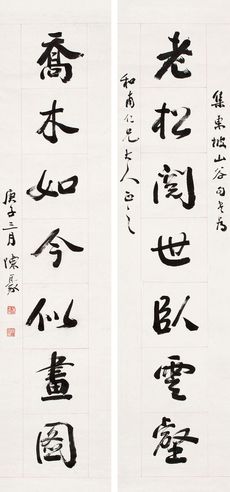 集東坡山谷句其為
老松閱世臥雲壑
和甫仁兄大人正之
喬木如今似畫圖
庚子三月陳融